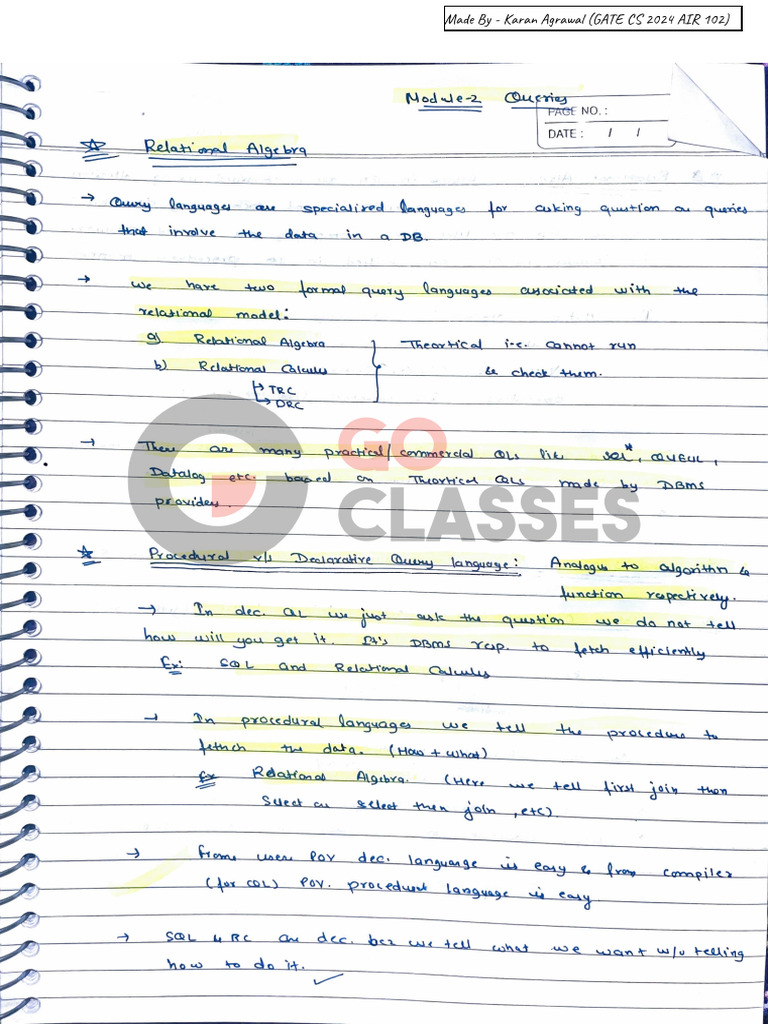 Made By - Karan Agrawal (GATE CS 2024 AIR 102)
Module-2 Queries
PAGE NO.:
DATE: / /
Relational Algebra
→ Query languages are specialized languages for asking question or queries
that involve the data in a DB.
→ We have two formal query languages associated with the
relational model:
a) Relational Algebra
b) Relational Calculus
→ TRC
→ DRC
Theortical i.e. cannot run
& check them.
→ There are many practical/commercial QLs like SQL*, QUEUL,
Datalog etc. based on Theortical QLs made by DBMS
providers.
GO
CLASSES
Procedural v/s Declarative Query language: Analogus to algorithm &
function respectively.
→ In dec. QL we just ask the question we do not tell
how will you get it. It's DBMS resp. to fetch efficiently
Ex: SQL and Relational Calculus
→ In procedural languages we tell the procedure to
fetch the data. (How + what)
Ex Relational Algebra. (Here we tell first join then
select or select then join, etc).
→ From users POV dec. language is easy & from compiler
(for QL) POV. procedural language is easy
→ SQL & RC are dec. bcz we tell what we want w/o telling
how to do it.